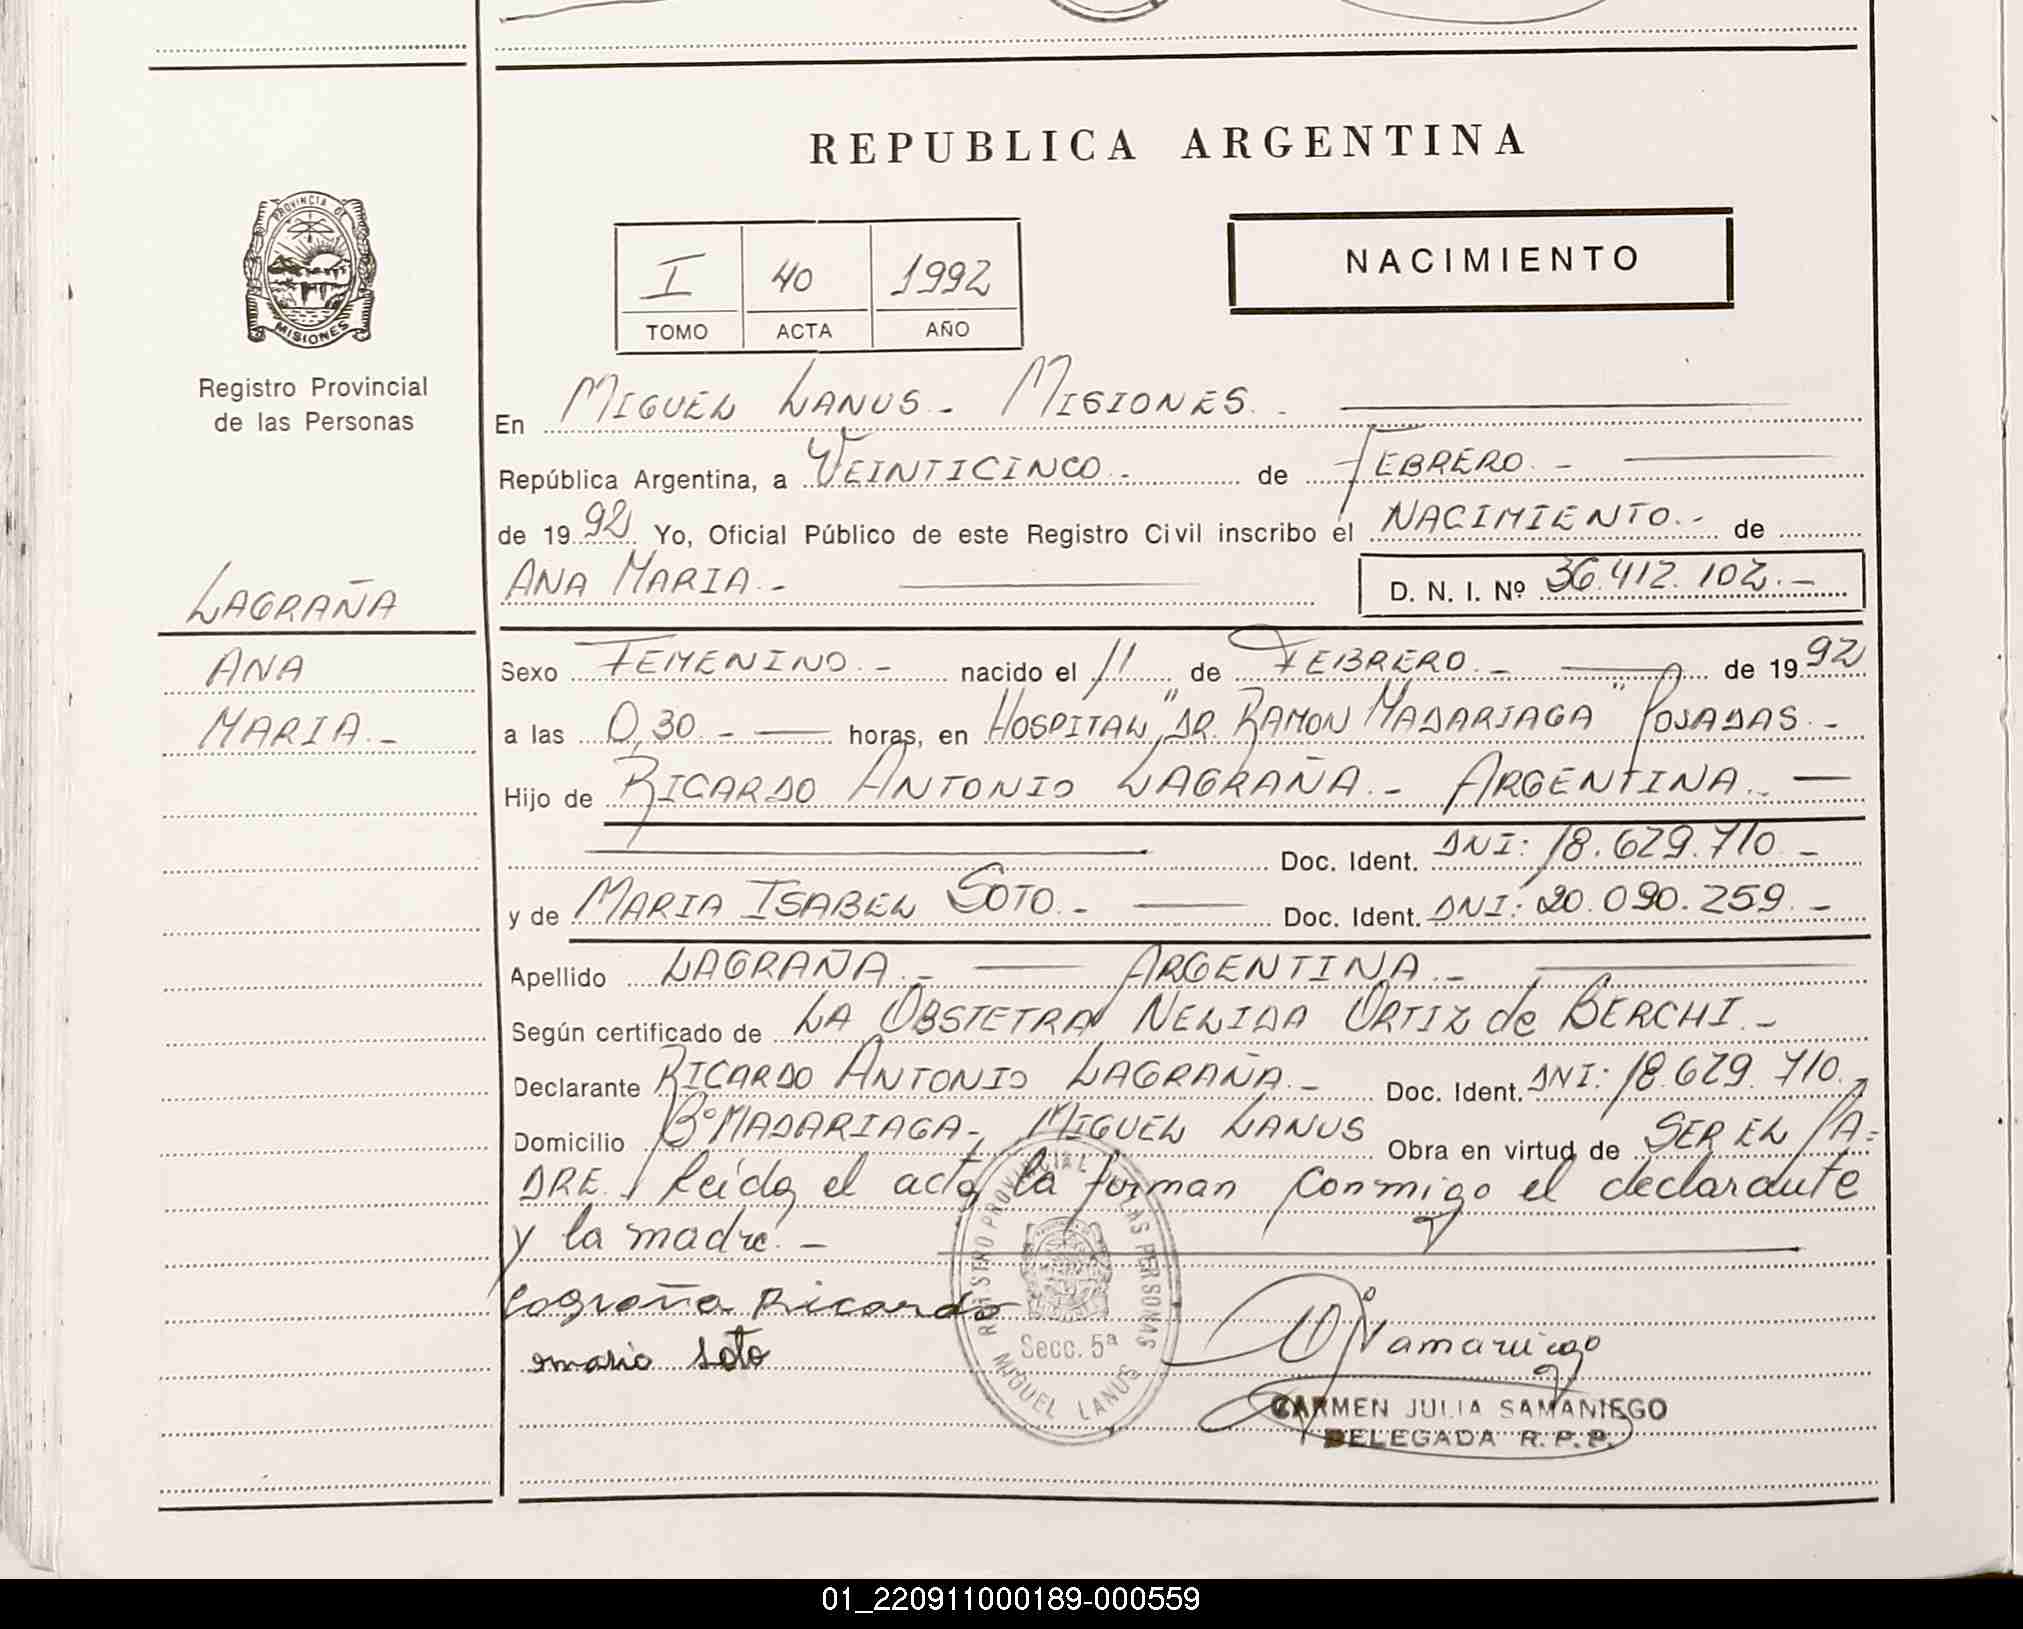 REPUBLICA ARGENTINA
PROVINCIA DE
MISIONES
Registro Provincial
de las Personas
I 40 1992
TOMO ACTA AÑO
NACIMIENTO
En MIGUEL LANUS.- MISIONES.-
República Argentina, a VEINTICINCO.- de FEBRERO.-
de 1992 Yo, Oficial Público de este Registro Civil inscribo el NACIMIENTO.- de
ANA MARIA.- D. N. I. Nº 36.412.102.-
LAGRAÑA
ANA
MARIA.-
Sexo FEMENINO.- nacido el 11 de FEBRERO.- de 1992
a las 0,30.- horas, en HOSPITAL "DR. RAMON MADARIAGA" POSADAS.-
Hijo de RICARDO ANTONIO LAGRAÑA.- ARGENTINA.-
Doc. Ident. DNI: 18.629.710.-
y de MARIA ISABEL SOTO.- Doc. Ident. DNI: 20.090.259.-
Apellido LAGRAÑA.- ARGENTINA.-
Según certificado de LA OBSTETRA NELIDA ORTIZ de BERCHI.-
Declarante RICARDO ANTONIO LAGRAÑA.- Doc. Ident. DNI: 18.629.710.
Domicilio Bº MADARIAGA-, MIGUEL LANUS Obra en virtud de SER EL PA=
DRE. Leída el acta la firman conmigo el declarante
y la madre.-
Lagraña Ricardo
maria soto
REGISTRO PROVINCIAL DE LAS PERSONAS
Secc. 5ª
MIGUEL LANUS
CARMEN JULIA SAMANIEGO
DELEGADA R. P. P.
01_220911000189-000559